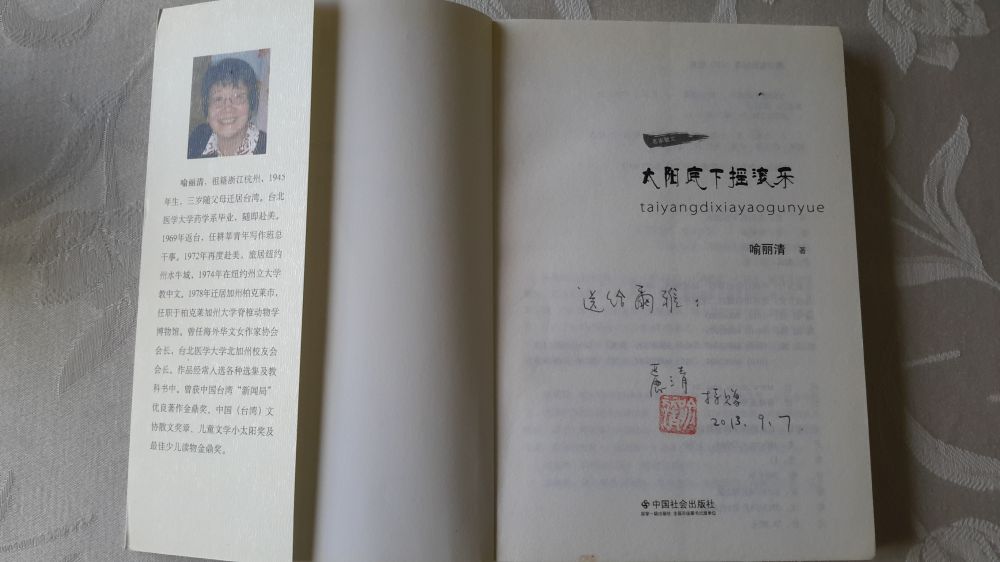 喻丽清，祖籍浙江杭州，1945
年生，三岁随父母迁居台湾。台北
医学大学药学系毕业，随即赴美。
1969年返台，任耕莘青年写作班总
干事。1972年再度赴美，旅居纽约
州水牛城，1974年在纽约州立大学
教中文。1978年迁居加州柏克莱市，
任职于柏克莱加州大学脊椎动物学
博物馆。曾任海外华文女作家协会
会长、台北医学大学北加州校友会
会长。作品经常入选各种选集及教
科书中。曾获中国台湾“新闻局”
优良著作金鼎奖、中国（台湾）文
协散文奖章、儿童文学小太阳奖及
最佳少儿读物金鼎奖。
名家散文
太阳底下摇滚乐
taiyangdixiayaogunyue
喻丽清 著
送给爾雅：
麗清
持赠
2013. 9. 7.
中国社会出版社
国家一级出版社 全国百佳图书出版单位